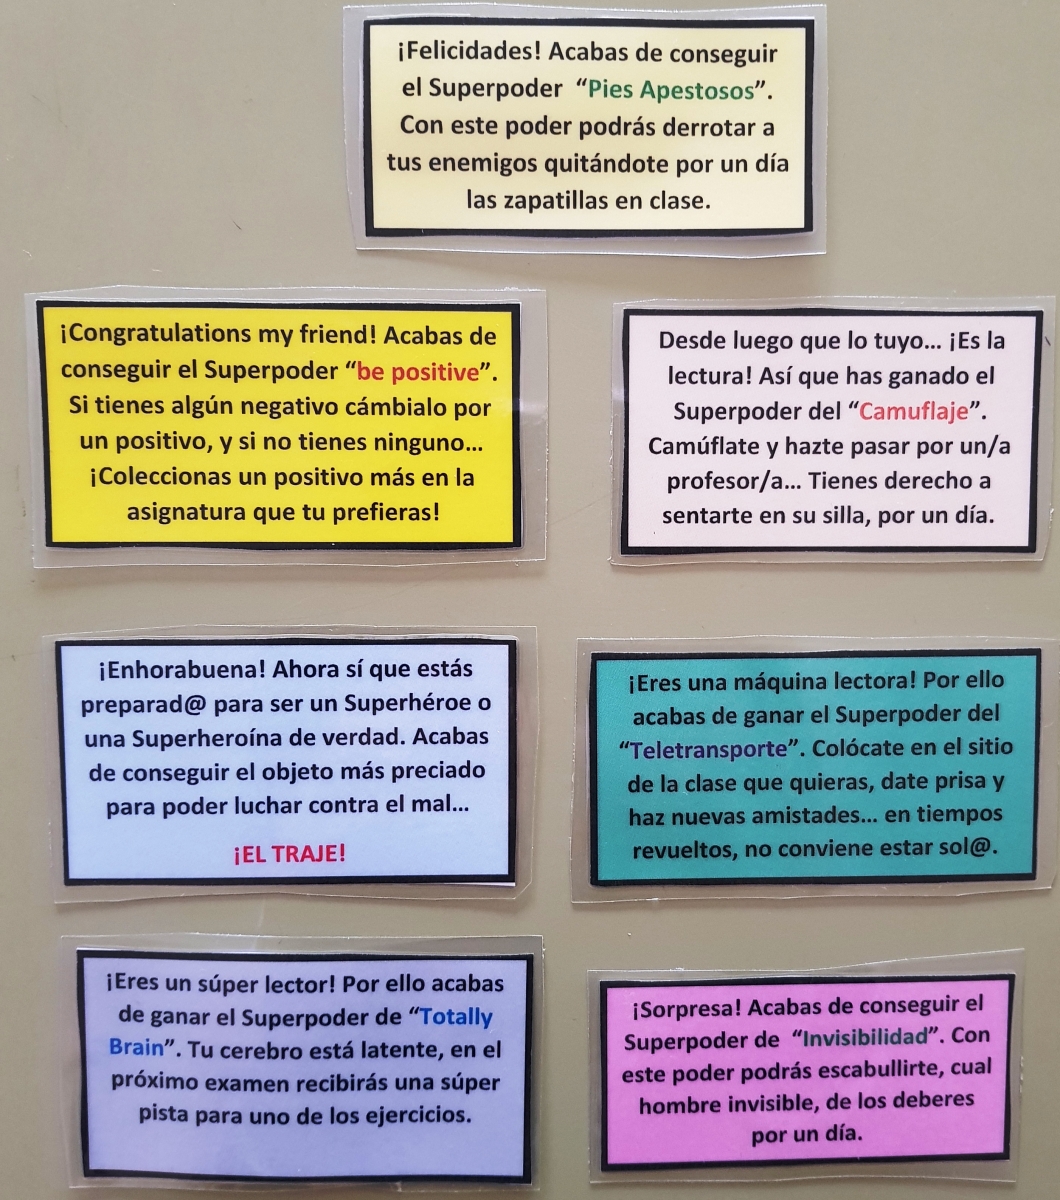 ¡Felicidades! Acabas de conseguir
el Superpoder “Pies Apestosos”.
Con este poder podrás derrotar a
tus enemigos quitándote por un día
las zapatillas en clase.
¡Congratulations my friend! Acabas de
conseguir el Superpoder “be positive”.
Si tienes algún negativo cámbialo por
un positivo, y si no tienes ninguno...
¡Coleccionas un positivo más en la
asignatura que tu prefieras!
Desde luego que lo tuyo... ¡Es la
lectura! Así que has ganado el
Superpoder del “Camuflaje”.
Camúflate y hazte pasar por un/a
profesor/a... Tienes derecho a
sentarte en su silla, por un día.
¡Enhorabuena! Ahora sí que estás
preparad@ para ser un Superhéroe o
una Superheroína de verdad. Acabas
de conseguir el objeto más preciado
para poder luchar contra el mal...
¡EL TRAJE!
¡Eres una máquina lectora! Por ello
acabas de ganar el Superpoder del
“Teletransporte”. Colócate en el sitio
de la clase que quieras, date prisa y
haz nuevas amistades... en tiempos
revueltos, no conviene estar sol@.
¡Eres un súper lector! Por ello acabas
de ganar el Superpoder de “Totally
Brain”. Tu cerebro está latente, en el
próximo examen recibirás una súper
pista para uno de los ejercicios.
¡Sorpresa! Acabas de conseguir el
Superpoder de “Invisibilidad”. Con
este poder podrás escabullirte, cual
hombre invisible, de los deberes
por un día.